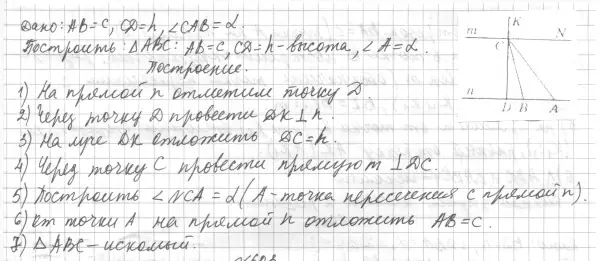 Дано: AB=c, CD=h, ∠CAB=α.
Построить: ΔABC: AB=c, CD=h-высота, ∠A=α.
Построение.
1) На прямой n отметим точку D.
2) Через точку D провести DK⊥n.
3) На луче DK отложить DC=h.
4) Через точку C провести прямую m⊥DC.
5) Построить ∠NCA=α (A-точка пересечения с прямой n).
6) От точки A на прямой n отложить AB=c.
7) ΔABC-искомый.
K
m
C
N
n
D
B
A